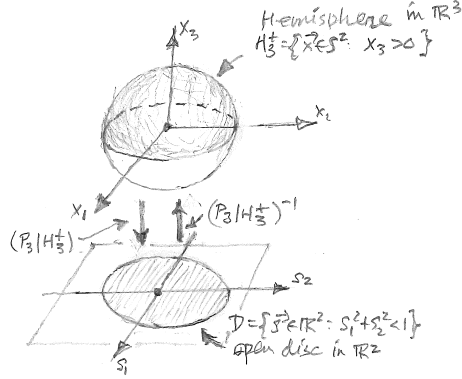 X₃
Hemisphere in ℝ³
H₃⁺ = {x⃗ ∈ S² : X₃ > 0}
X₂
X₁
(P₃|H₃⁺)
(P₃|H₃⁺)⁻¹
S₂
D = {s⃗ ∈ ℝ² : S₁² + S₂² < 1}
open disc in ℝ²
S₁